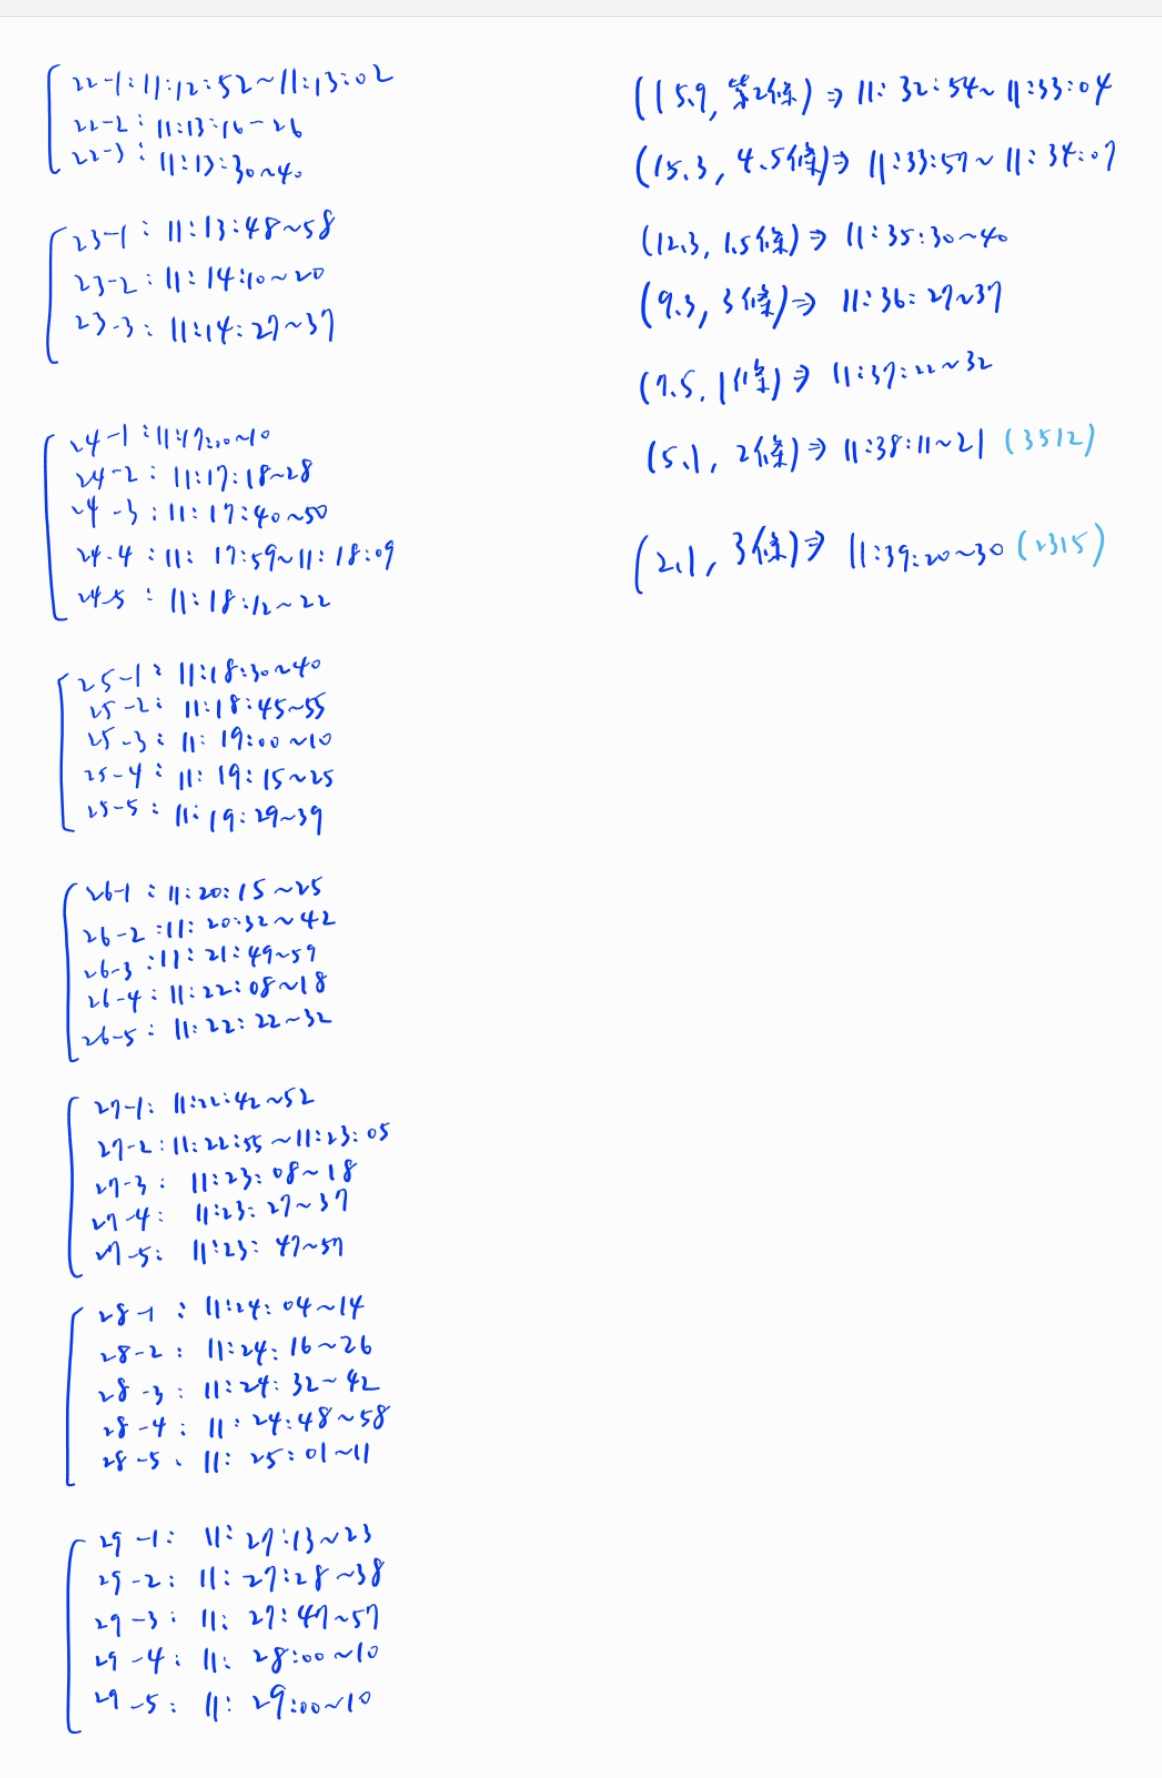 22-1:11:12:52~11:13:02
22-2:11:13:16~26
22-3:11:13:30~40
23-1:11:13:48~58
23-2:11:14:10~20
23-3:11:14:27~37
24-1:11:17:00~10
24-2:11:17:18~28
24-3:11:17:40~50
24-4:11:17:59~11:18:09
24-5:11:18:12~22
25-1:11:18:30~40
25-2:11:18:45~55
25-3:11:19:00~10
25-4:11:19:15~25
25-5:11:19:29~39
26-1:11:20:15~25
26-2:11:20:32~42
26-3:11:21:49~59
26-4:11:22:08~18
26-5:11:22:22~32
27-1:11:22:42~52
27-2:11:22:55~11:23:05
27-3:11:23:08~18
27-4:11:23:27~37
27-5:11:23:47~57
28-1:11:24:04~14
28-2:11:24:16~26
28-3:11:24:32~42
28-4:11:24:48~58
28-5:11:25:01~11
29-1:11:27:13~23
29-2:11:27:28~38
29-3:11:27:47~57
29-4:11:28:00~10
29-5:11:29:00~10
(15.9, 第2條) ⇒ 11:32:54~11:33:04
(15.3, 4.5條) ⇒ 11:33:57~11:34:07
(12.3, 1.5條) ⇒ 11:35:30~40
(9.3, 3條) ⇒ 11:36:27~37
(7.5, 1條) ⇒ 11:37:22~32
(5.1, 2條) ⇒ 11:38:11~21 (3512)
(2.1, 3條) ⇒ 11:39:20~30 (2315)